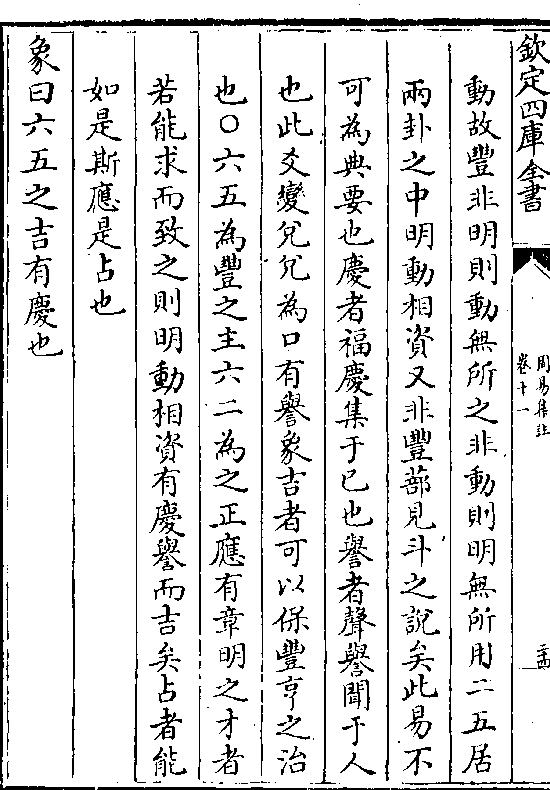 欽定四庫全書
周易集註
卷十一
二十四
動故豐非明則動無所之非動則明無所用二五居
兩卦之中明動相資又非豐蔀見斗之說矣此易不
可為典要也慶者福慶集于已也譽者聲譽聞于人
也此爻變兌兌為口有譽象吉者可以保豐亨之治
也○六五為豐之主六二為之正應有章明之才者
若能求而致之則明動相資有慶譽而吉矣占者能
如是斯應是占也
象曰六五之吉有慶也